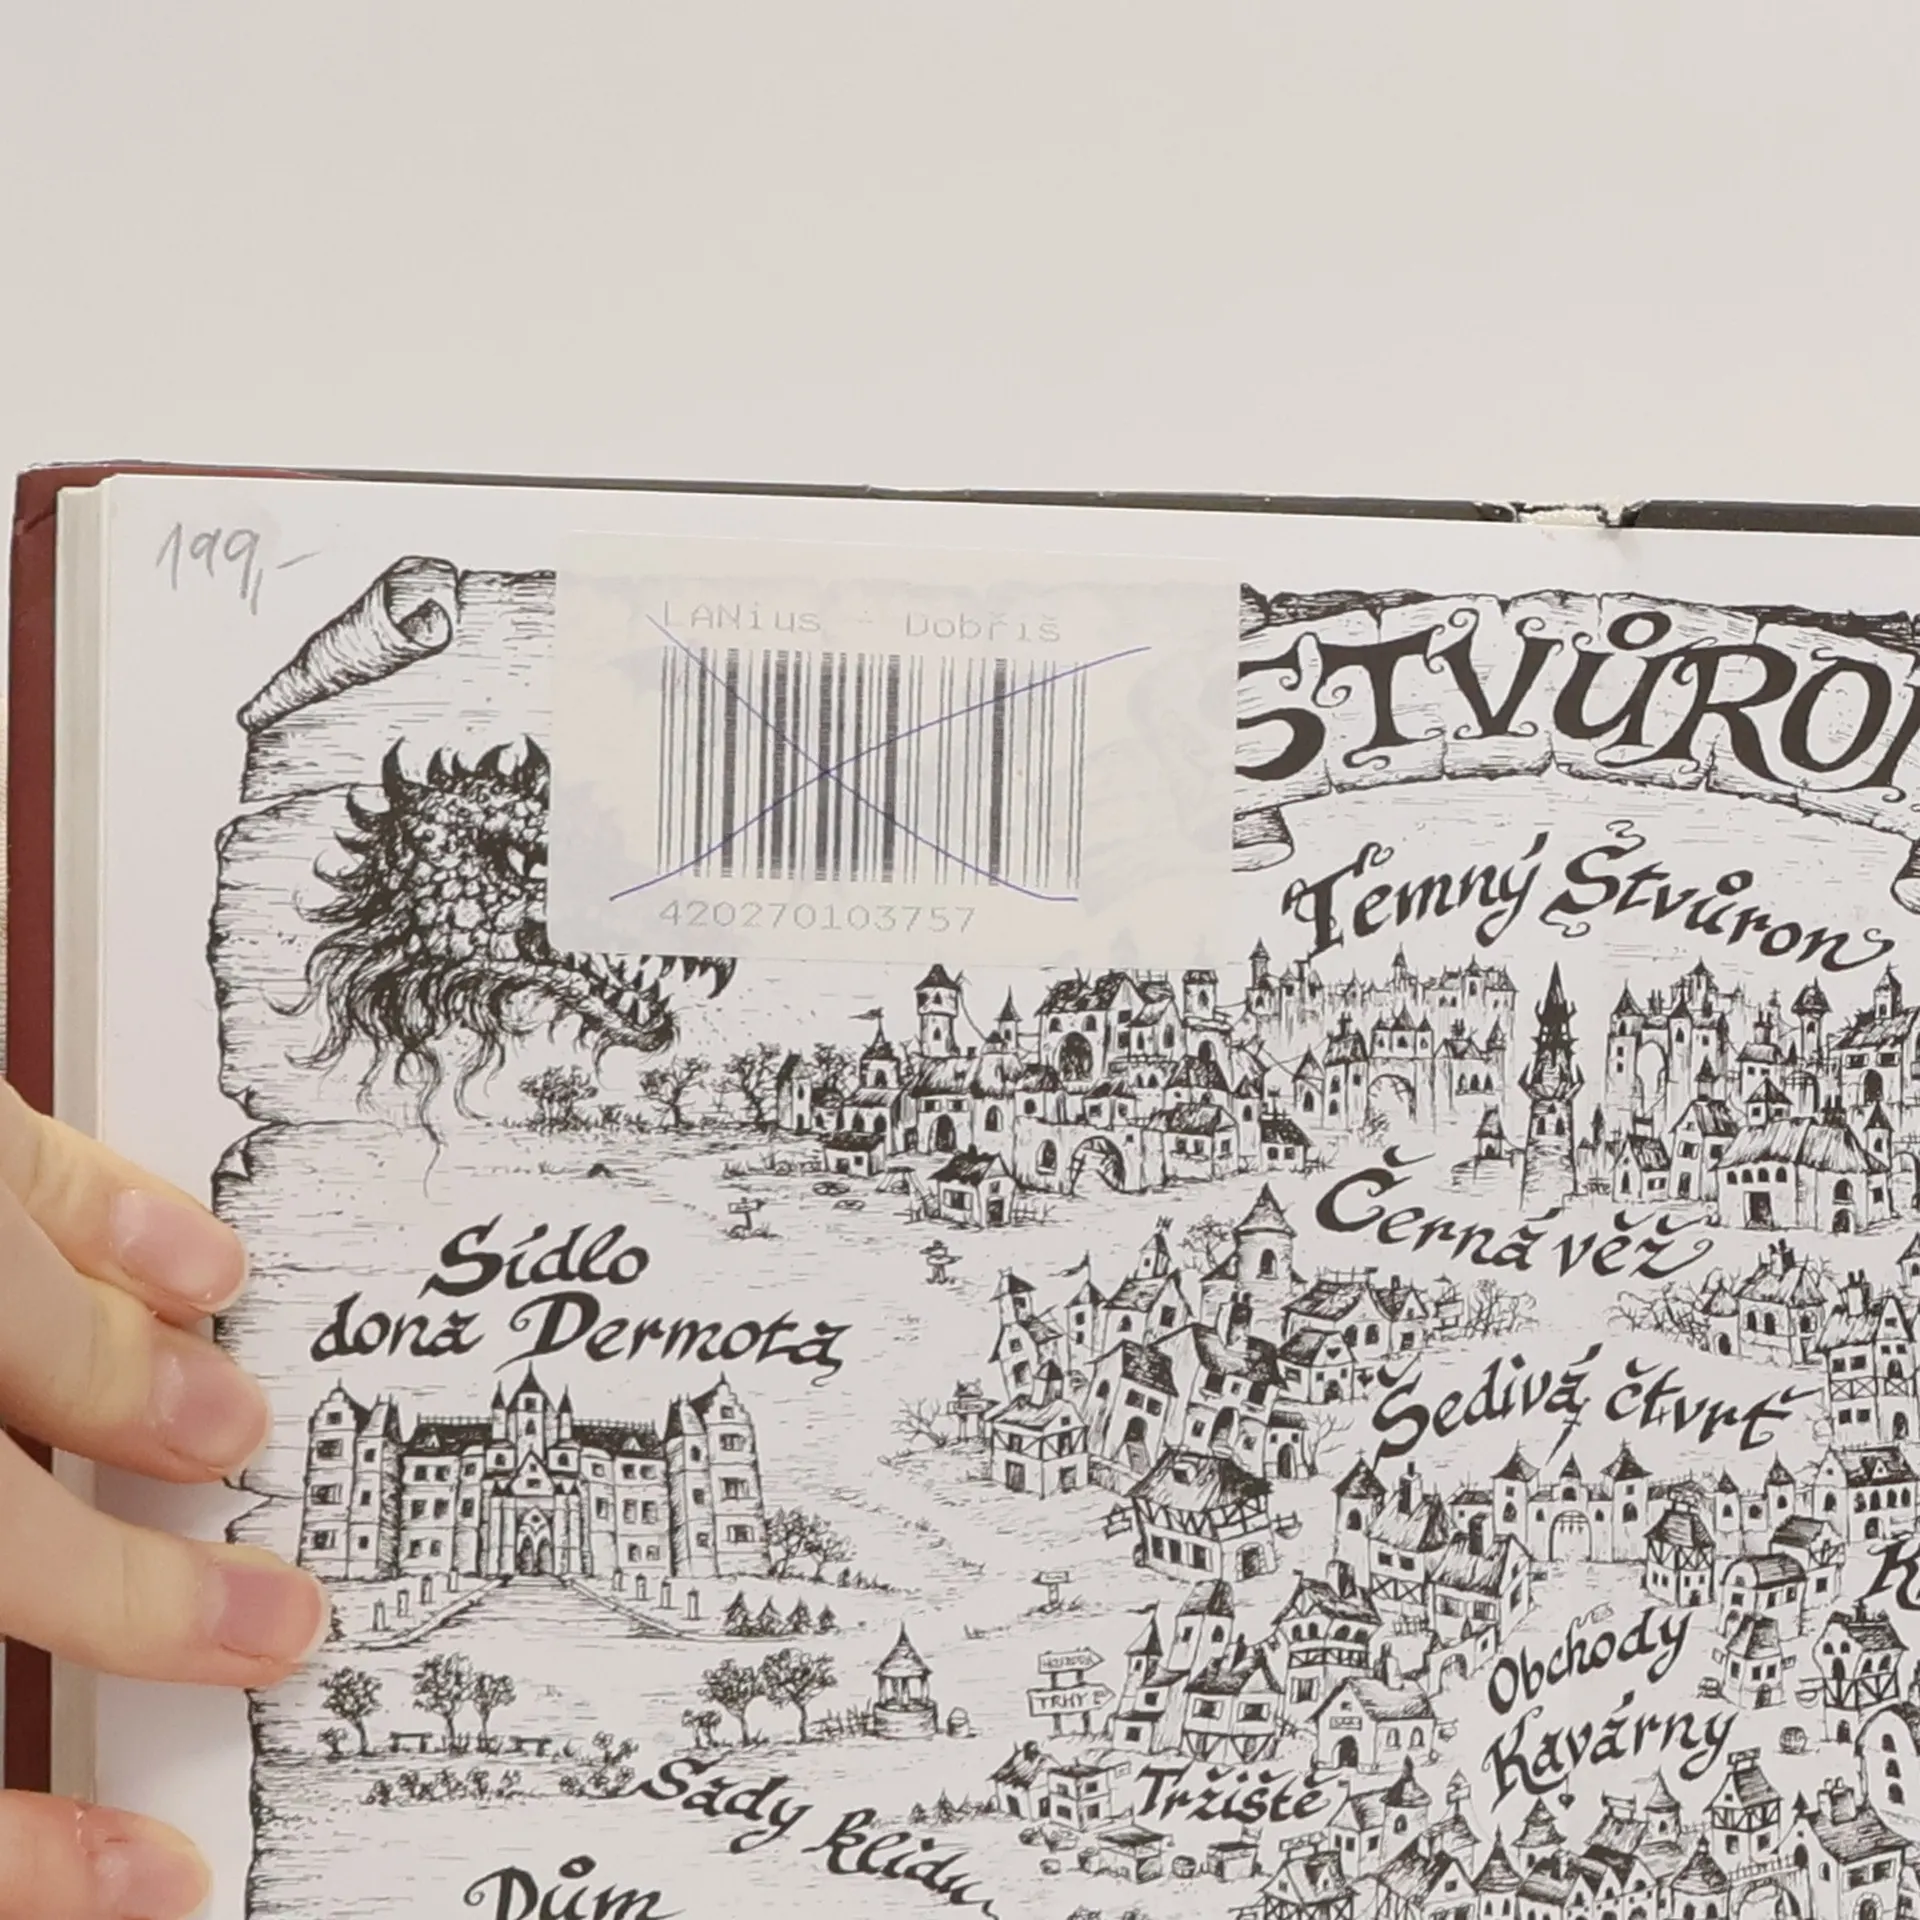 199,-
LANius - Dobříš
420270103757
Temný Štvůron
Černá věž
Sídlo
dona Dermota
Šedivá čtvrť
Obchody
Kavárny
TRHY
Tržiště
Sady klidu
Dům